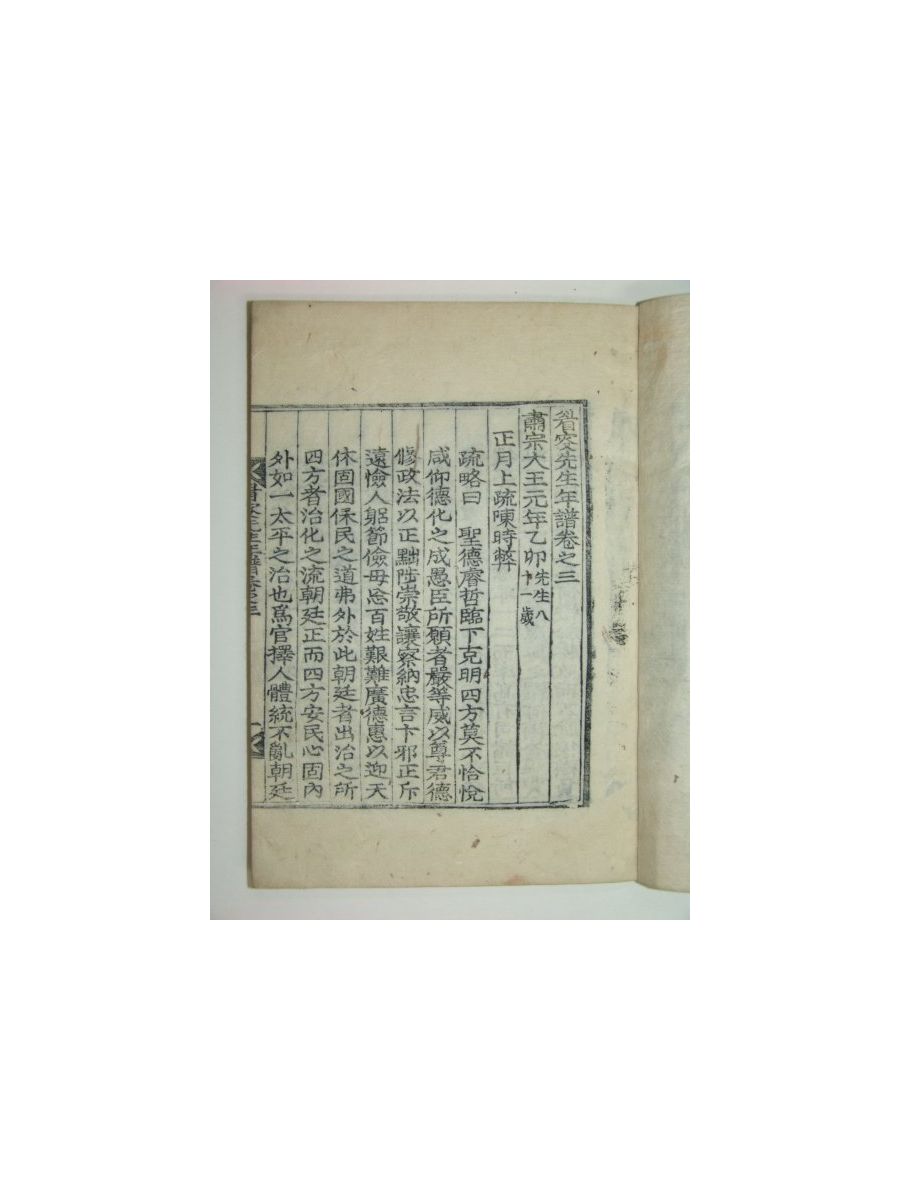 眉叟先生年譜卷之三
肅宗大王元年乙卯先生八十一歲
正月上疏陳時弊
疏略曰 聖德睿哲臨下克明四方莫不恰悅
咸仰德化之成愚臣所願者嚴等威以尊君德
修政法以正黜陟崇敬讓察納忠言卞邪正斥
遠憸人躬節儉毋忘百姓艱難廣德惠以迎天
休固國保民之道弗外於此朝廷者出治之所
四方者治化之流朝廷正而四方安民心固內
外如一太平之治也爲官擇人體統不亂朝廷